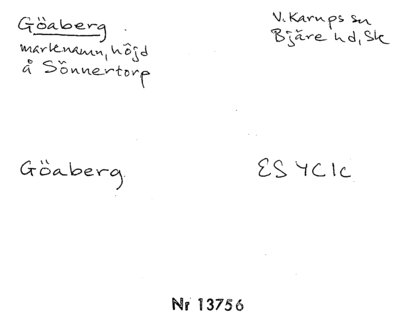 Göaberg
marknamn, höjd
å Sönnertorp
V. Karups sn
Bjäre hd, Sk
Göaberg
ES 4C1c
Nr 13756